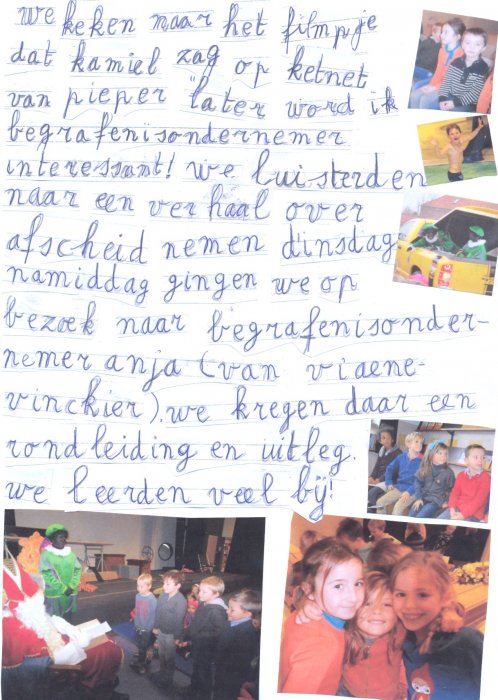 we keken naar het filmpje
dat kamiel zag op ketnet
van pieper "later word ik
begrafenisondernemer
interessant! we luisterden
naar een verhaal over
afscheid nemen dinsdag
namiddag gingen we op
bezoek naar begrafenisonder-
nemer anja (van viaene-
vinckier). we kregen daar een
rondleiding en uitleg.
we leerden veel bij!